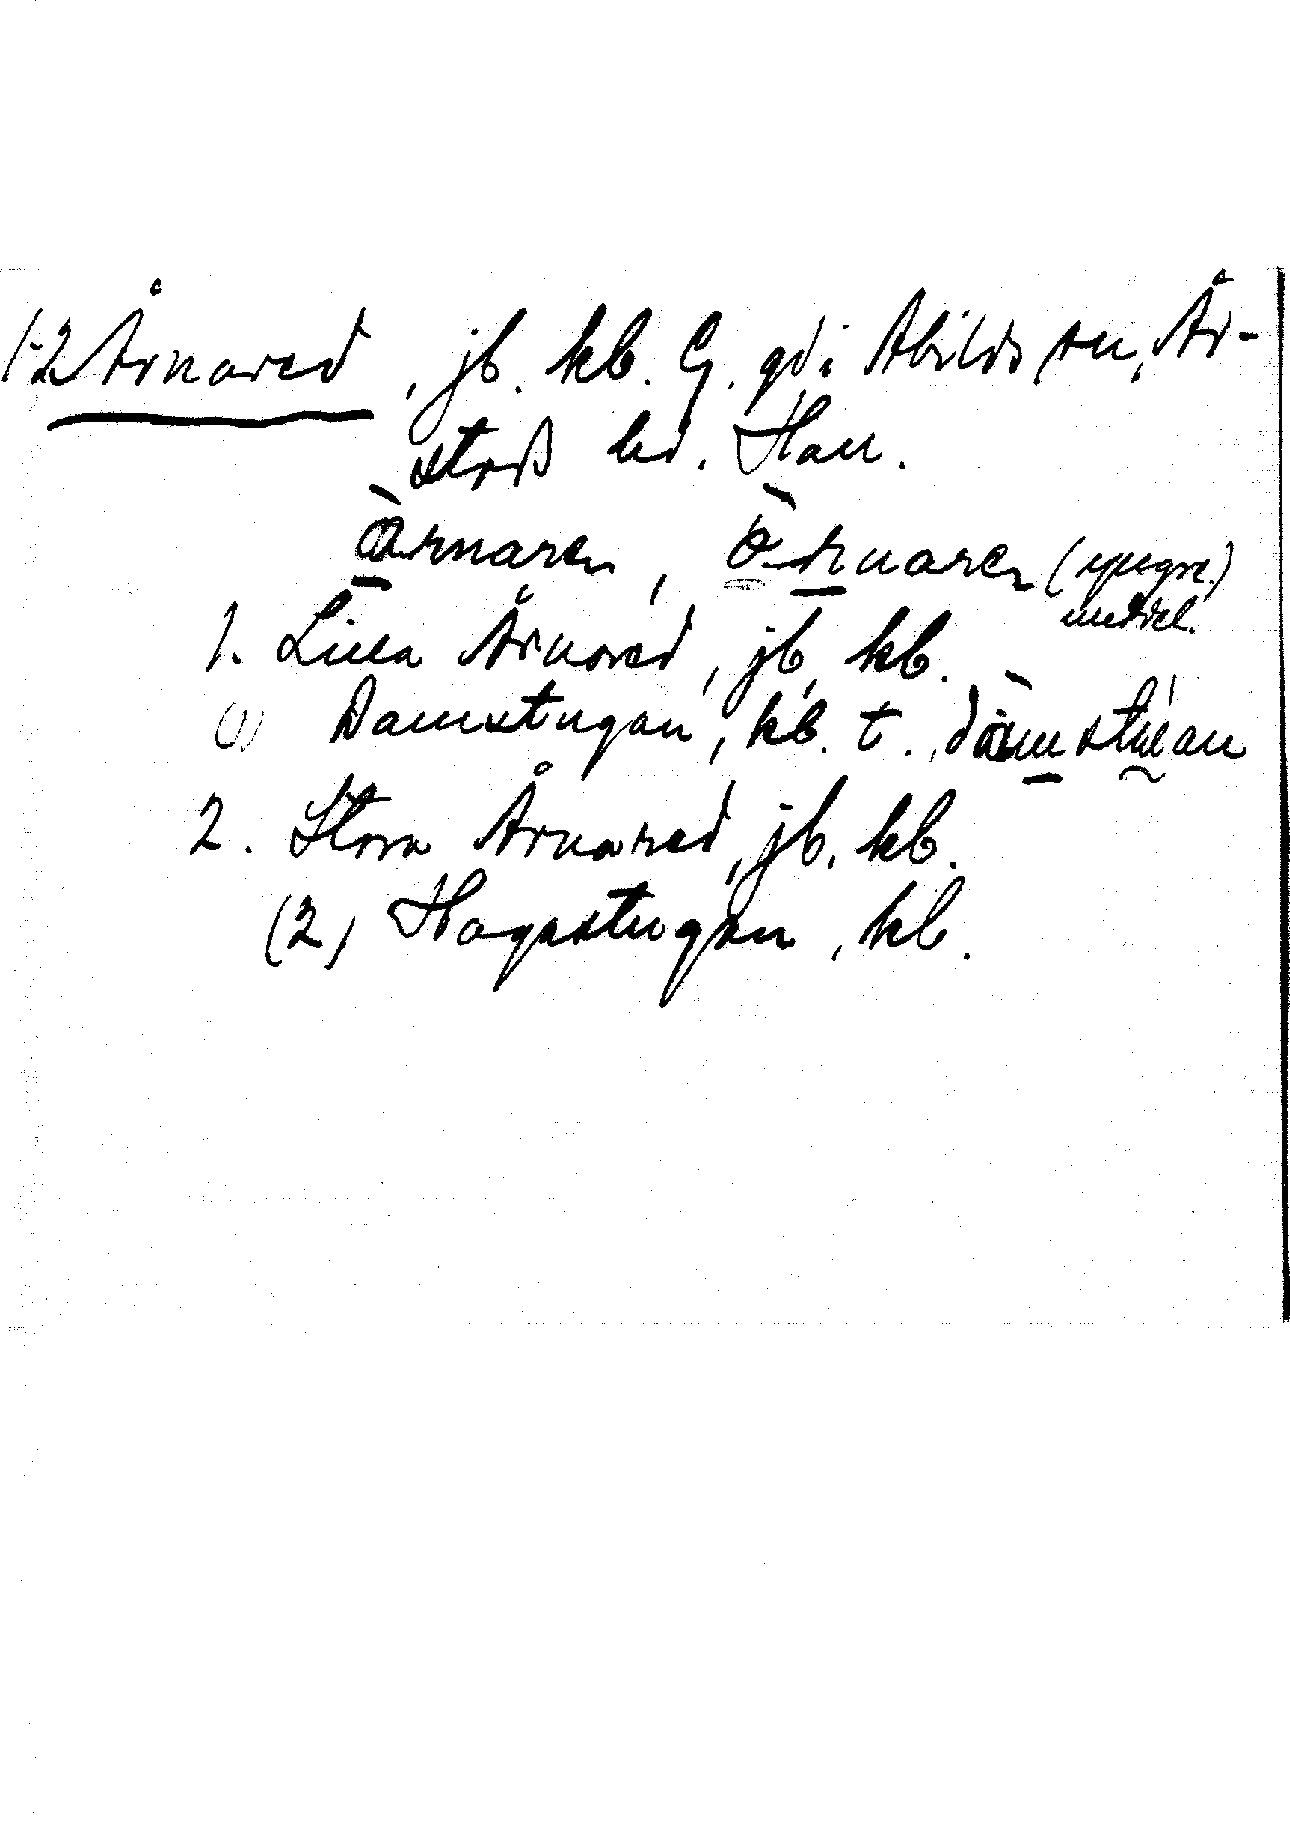 1-2 Årnared, jb. kb. G. gd i Abilds sn, År-
stads hd. Hall.
årnaren, ò-rnaren (yngre)
meddel.
1. Lilla Årnared, jb, kb.
(1) Damstugan, kb. t.
2. Stora Årnared, jb. kb.
(2) Hagastugan, kb.